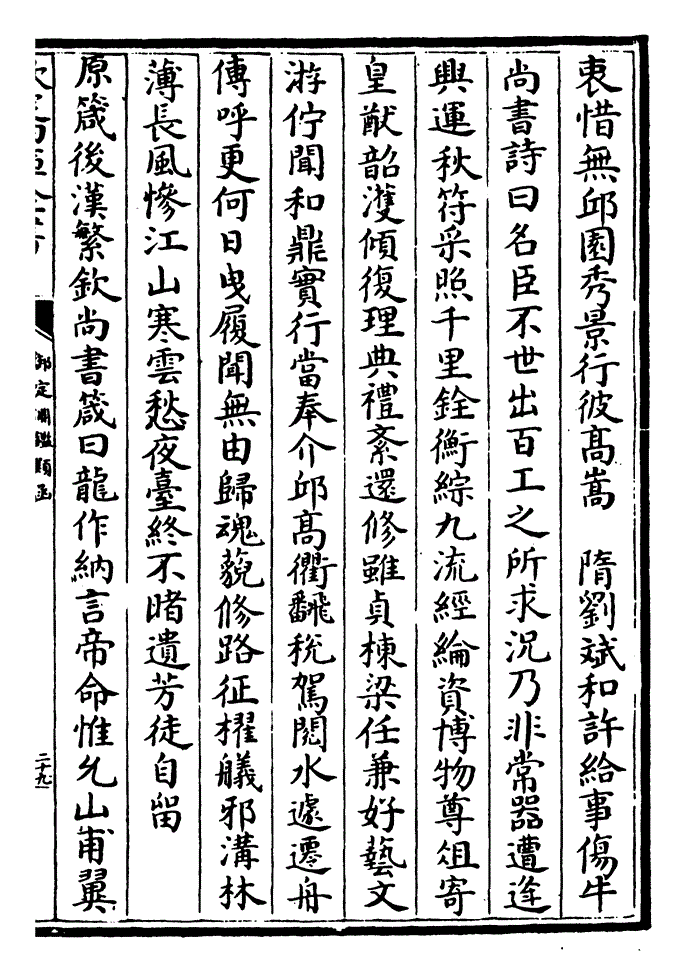 衷惜無邱園秀景行彼髙嵩　隋劉斌和許給事傷牛
尚書詩曰名臣不世出百工之所求況乃非常器遭逢
興運秋符采照千里銓衡綜九流經綸資博物尊俎寄
皇猷韶濩傾復理典禮紊還修雖貞棟梁任兼好藝文
游佇聞和鼎實行當奉介邱髙衢翻税駕閲水遽遷舟
傳呼更何日曳履聞無由歸魂藐修路征櫂艤邪溝林
薄長風慘江山寒雲愁夜臺終不睹遺芳徒自留
原箴後漢繁欽尚書箴曰龍作納言帝命惟允山甫翼
欽定四庫全書
御定淵鑑類函
二十九